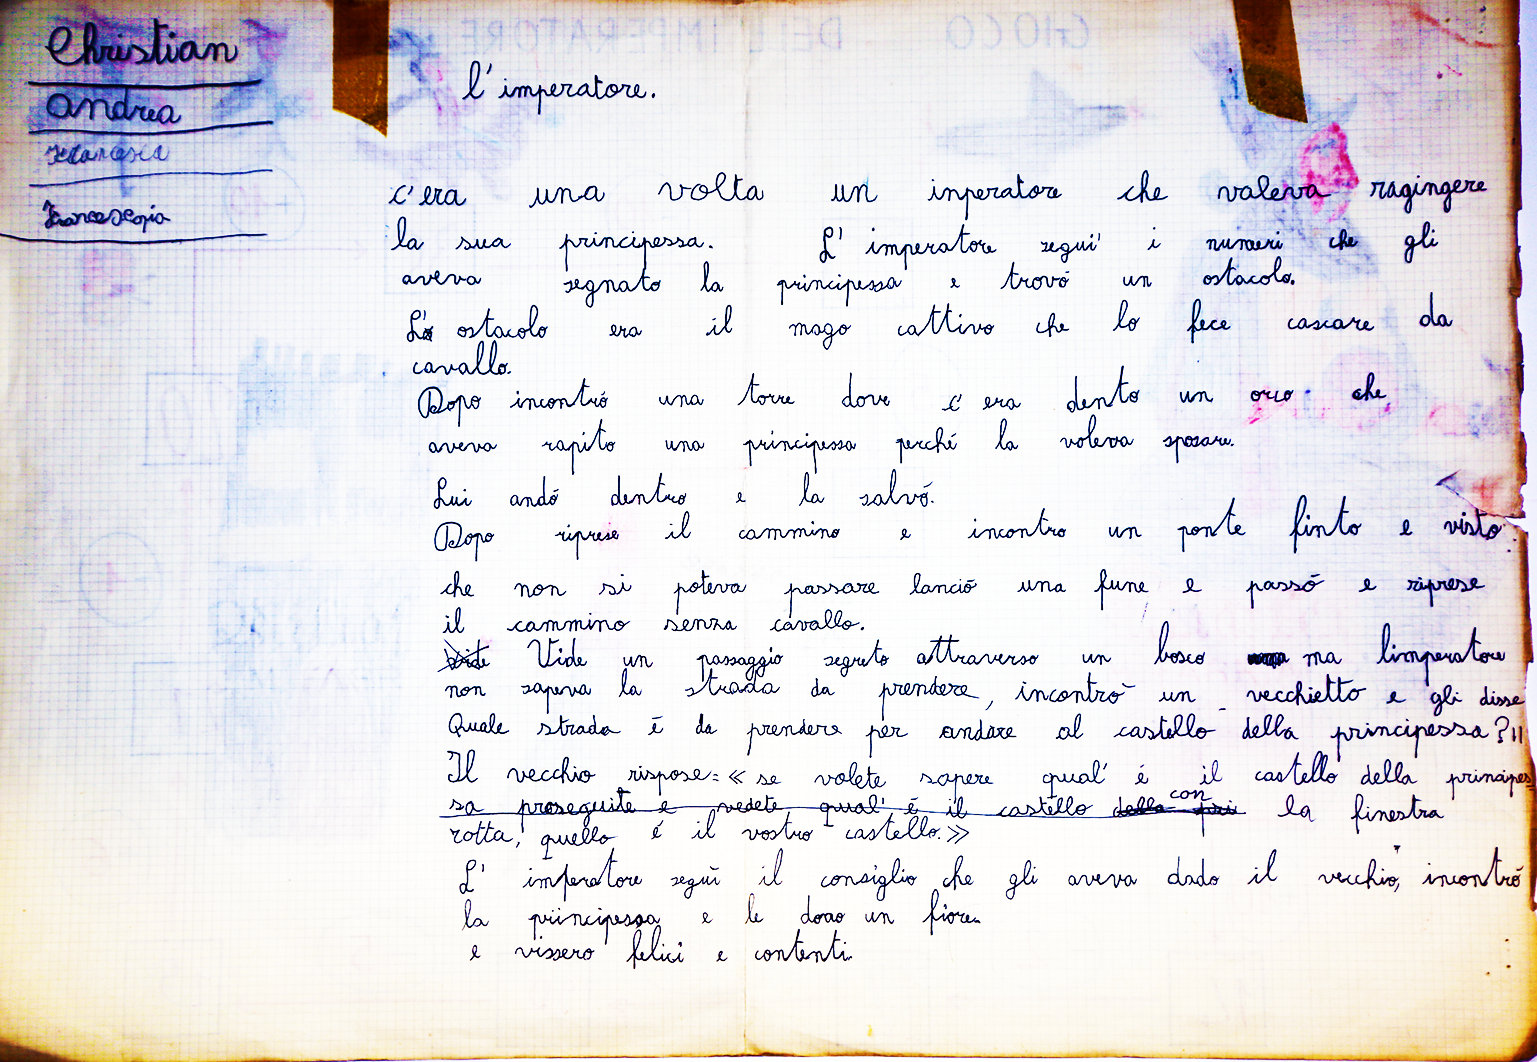 Christian
andrea
l'imperatore.
c'era una volta un inperatore che valeva ragingere
la sua principessa. L'imperatore segui' i numeri che gli
aveva segnato la principessa e trovó un ostacolo.
L' ostacolo era il mago cattivo che lo fece cascare da
cavallo.
Dopo incontró una torre dove c'era dento un orco che
aveva rapito una principessa perché la voleva sposare.
Lui andó dentro e la salvó.
Dopo riprese il cammino e incontro un ponte finto e visto
che non si poteva passare lanció una fune e passó e riprese
il cammino senza cavallo.
Vide un passaggio segreto attraverso un bosco ma limperatore
non sapeva la strada da prendere, incontrò un vecchietto e gli disse
Quale strada é da prendere per andare al castello della principessa?"
Il vecchio rispose: « se volete sapere qual' é il castello della principes
sa proseguite e vedete qual' é il castello con la finestra
rotta, quello é il vostro castello.»
L' imperatore seguì il consiglio che gli aveva dado il vecchio, incontró
la principessa e le dono un fiore.
e vissero felici e contenti.
GIOCO DELL'IMPERATORE